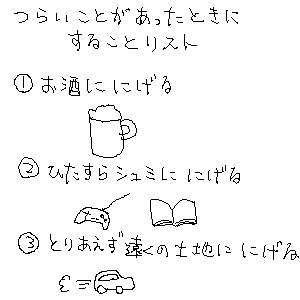 つらいことがあったときに
することリスト
① お酒に にげる
② ひたすらシュミに にげる
③ とりあえず遠くの土地に にげる